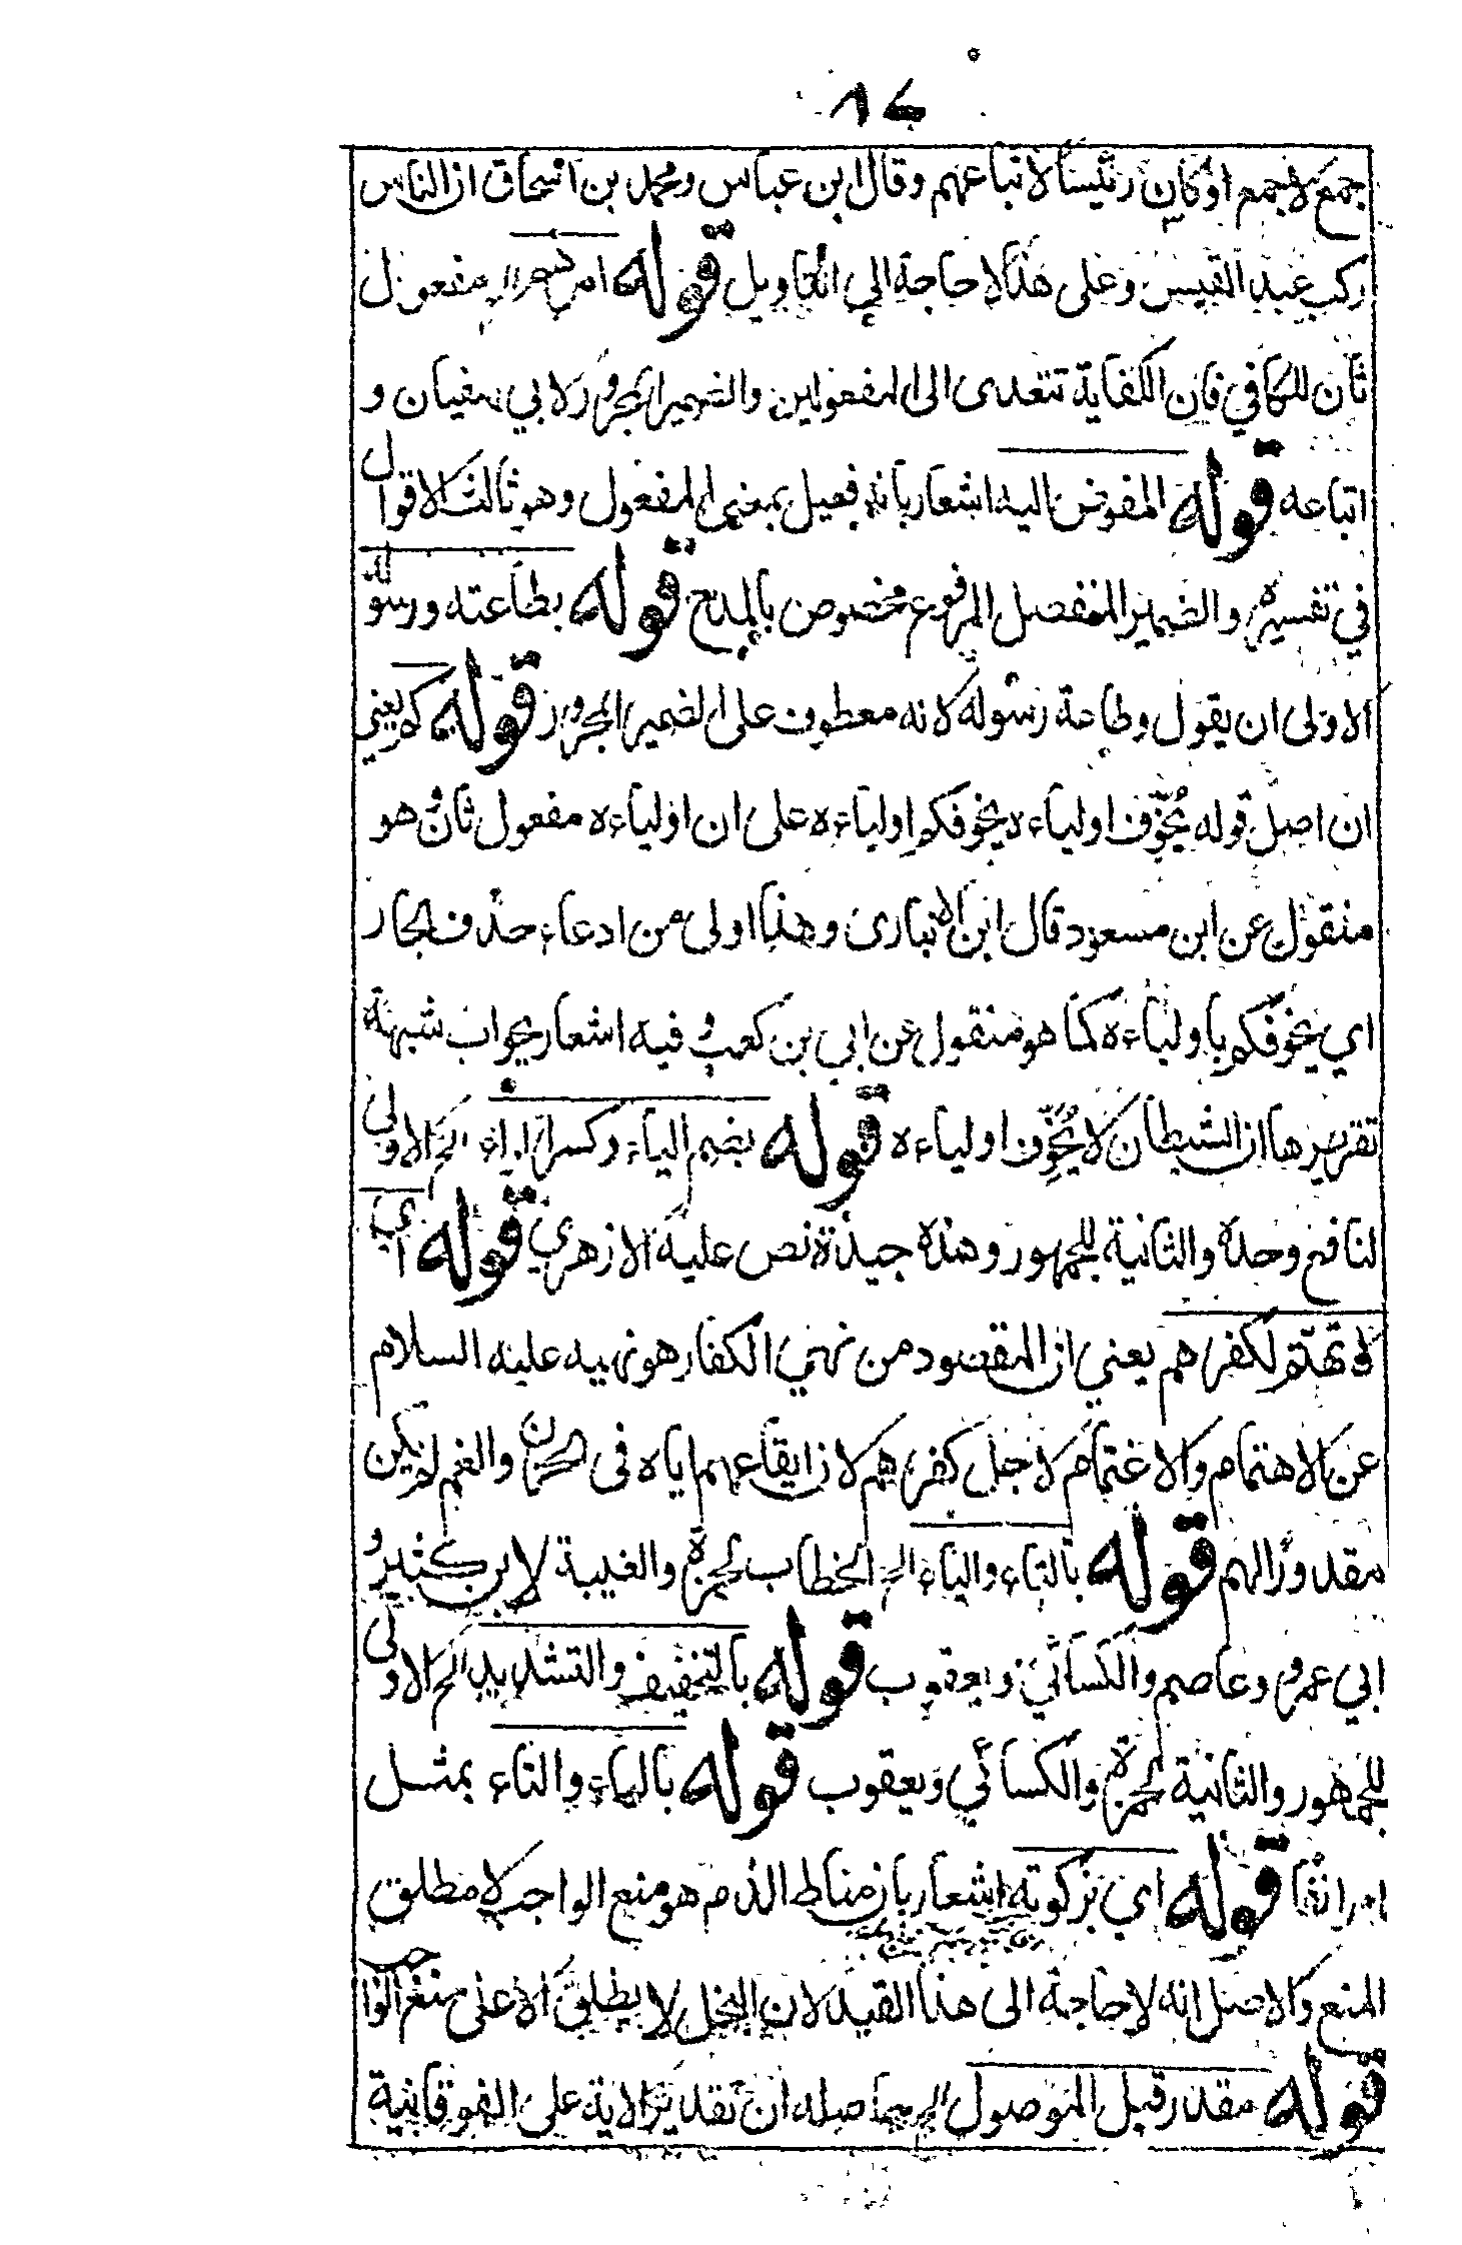 جمع لاجمع اوكان رئيسا لاتباعهم وقال ابن عباس ومحمد بن اسحاق ان الناس
ركب عبد القيس وعلى هذا لاحاجة الى التاويل قوله امرهم الخ مفعول
ثان للكافي فان الكفاية تتعدى الى المفعولين والضمير المجرور لابي سفيان و
اتباعه قوله المفوض اليه اشعار بانه فعيل بمعنى المفعول وهو ثالث الاقوال
في تفسيره والضمير المنفصل المرفوع مخصوص بالمدح قوله بطاعته ورسوله
الاولى ان يقول وطاعة رسوله لانه معطوف على الضمير المجرور قوله كم يعني
ان اصل قوله يُخوِّف اولياءه يخوفكم اولياءه على ان اولياءه مفعول ثان وهو
منقول عن ابن مسعود قال ابن الانبارى وهذا اولى من ادعاء حذف الجار
اي يخوفكم باولياءه كما هو منقول عن ابي بن كعب وفيه اشعار بجواب شبهة
تقريرها ان الشيطان لا يُخوِّف اولياءه قوله بضم الياء وكسر الزاء الخ الاولى
لنافع وحده والثانية للجمهور وهذه جيدة نص عليه الازهري قوله اي
لا تهتم لكفرهم يعني ان المقصود من نهي الكفار هو نهيه عليه السلام
عن الاهتمام والاغتمام لاجل كفرهم لان ايقاعهم اياه فى الحزن والغم لم يكن
مقدورا لهم قوله بالتاء والياء الخ الخطاب لحمزة والغيبة لابن كثير و
ابي عمرو وعاصم والكسائي ويعقوب قوله بالتخفيف والتشديد الخ الاولى
للجمهور والثانية لحمزة والكسائي ويعقوب قوله بالياء والتاء بمثل
امر انفا قوله اي بزكوته اشعار بان مناط الذم هو منع الواجب لا مطلق
المنع والاصل انه لا حاجة الى هذا القيد لان البخل لا يطلق الا على منع الواجب
قوله مقدر قبل الموصول الخ حاصله ان تقدير الاية على الفوقانية